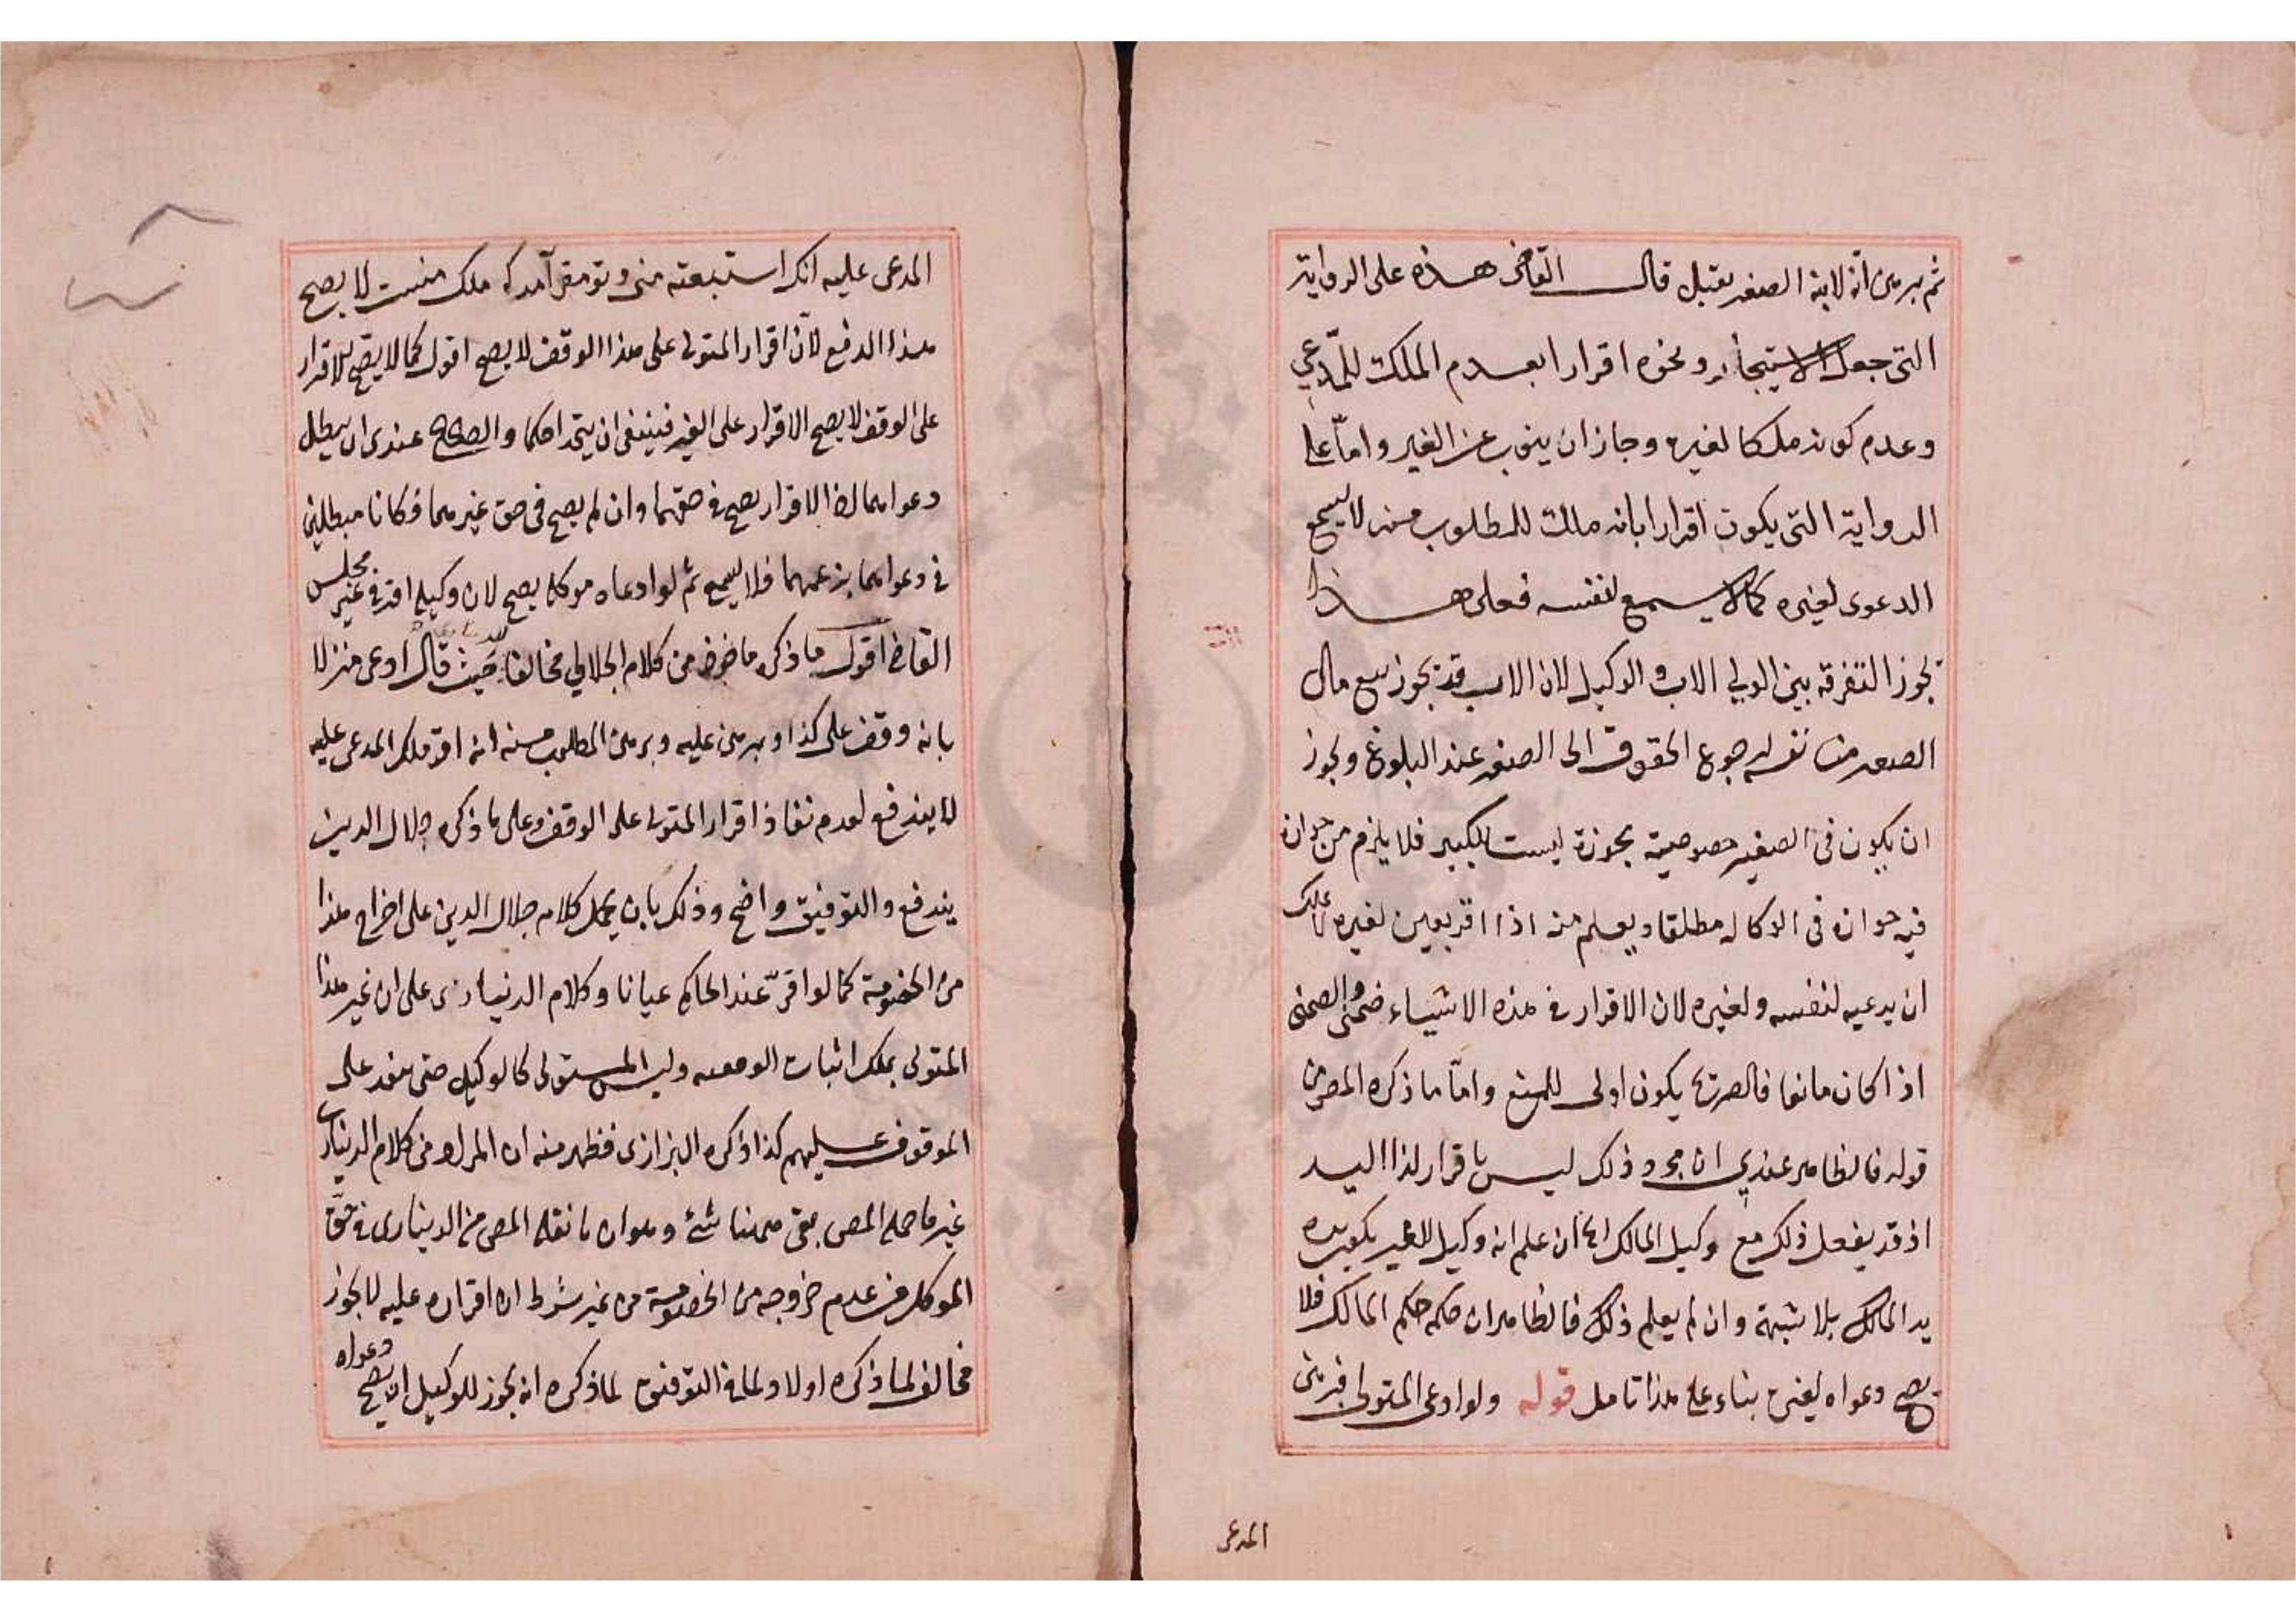 ثم برهن انه لابنه الصغير يقبل قال القاضي هذه على الرواية
التي جعل الاستيجار ونحوه اقرارا بعدم الملك للمدعي
وعدم كونه ملكا لغيره وجاز ان ينوب عن الغير واما على
الرواية التي يكون اقرارا بانه ملك للمطلوب منه لا يسمع
الدعوى لغيره كما لا يسمع لنفسه فعلى هذا
تجوز التفرقة بين الولي الاب و الوكيل لان الاب قد يجوز بيع مال
الصغير من نفسه رجوع الحقوق الى الصغير عند البلوغ ويجوز
ان يكون في الصغير خصوصية مجوزة ليست للكبير فلا يلزم من جوازه
فيه جوازه في الوكالة مطلقا ويعلم منه اذا اقر بعين لغيره لا يملك
ان يدعيه لنفسه ولغيره لان الاقرار في هذه الاشياء ضمني والضمني
اذا كان مانعا فالصريح يكون اولى للمنع واما ما ذكره المص من
قوله فالظاهر عندي ان مجرد ذلك ليس باقرار لذا اليد
اذ قد يفعل ذلك مع وكيل المالك ايضا ان علم انه وكيل للغير يكون يده
يد المالك بلا شبهة وان لم يعلم ذلك فالظاهر ان حكمه حكم المالك فلا
يصح دعواه لغيره بناء على هذا تامل قوله ولو ادعى المتولي فبرهن
المدعى
المدعى عليه انك استبعته مني وتو مقر آمدى كه ملك منست لا يصح
هذا الدفع لان اقرار المتولى على هذا الوقف لا يصح اقول كما لا يصح الاقرار
على الوقف لا يصح الاقرار على الغير فينبغي ان يتحدا حكما والصحيح عندى ان يبطل
دعواهما لان الاقرار يصح في حقهما وان لم يصح في حق غيرهما فكانا مبطلين
في دعواهما بزعمهما فلا يسمع ثم لو ادعاه موكله يصح لان وكيله اقر في غير مجلس
القاضي اقول ما ذكره ماخوذ من كلام الجلالي مخالفا حيث قال ادعى منزلا
بانه وقف على كذا وبرهن عليه وبرهن المطلوب منه انه اقر ملك المدعى عليه
لا يندفع لعدم نفاذ اقرار المتولى على الوقف وعلى ما ذكره جلال الدين
يندفع والتوفيق واضح وذلك بان يحمل كلام جلال الدين على اخراج هذا
من الخصومة كما لو اقر عند الحاكم عيانا وكلام الدينارى على ان غير هذا
المتولي يملك اثبات الوقفيه وليس المتولى كالوكيل حتى ينفذ على
الموقوف عليهم كذا ذكره البزازى فظهر منه ان المراد من كلام الدينارى
غير ما حمله المص بقى ههنا شئ وهو ان ما نقله المص من الدينارى في حق
الموكل من عدم خروجه من الخصومة من غير شرط ان اقراره عليه لا يجوز
مخالف لما ذكره اولا ولما في التوفيق لما ذكره انه يجوز للوكيل ان يصح دعواه